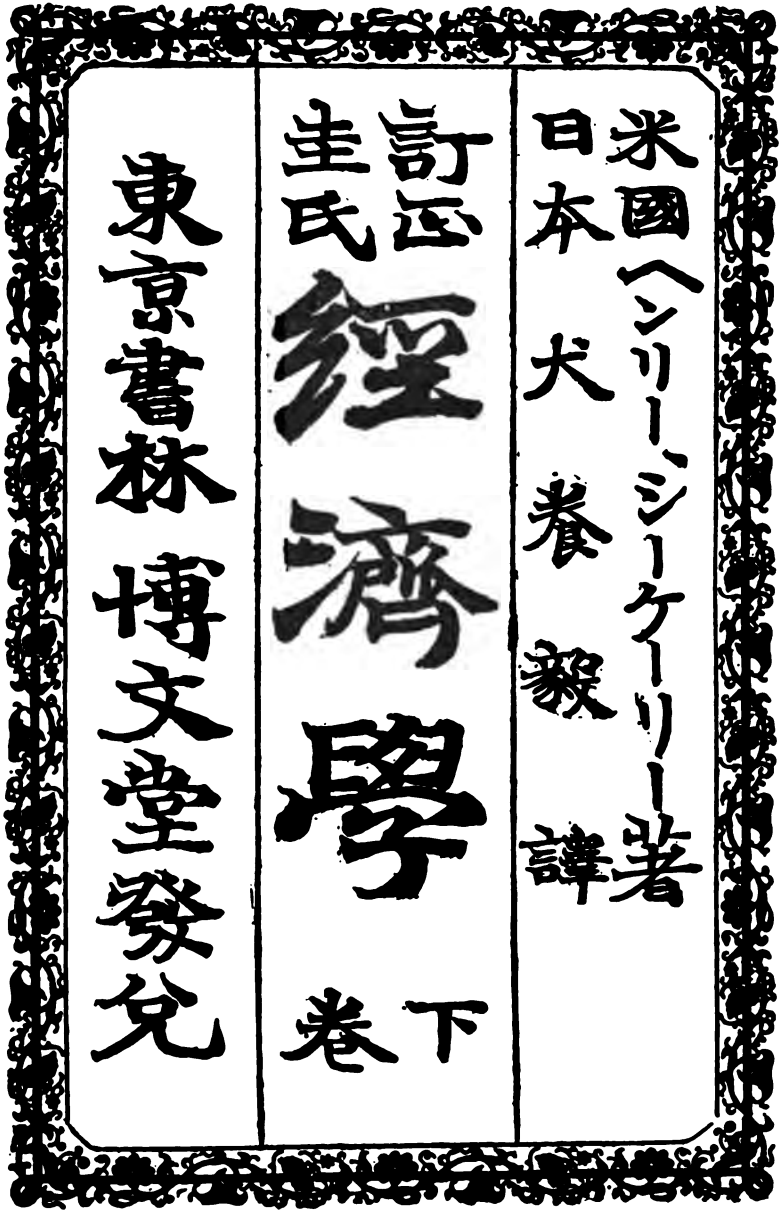 米國ヘンリー、シーケーリー著
日本犬養毅譯
訂正
圭氏
經濟學
下
卷
東京書林博文堂發兌